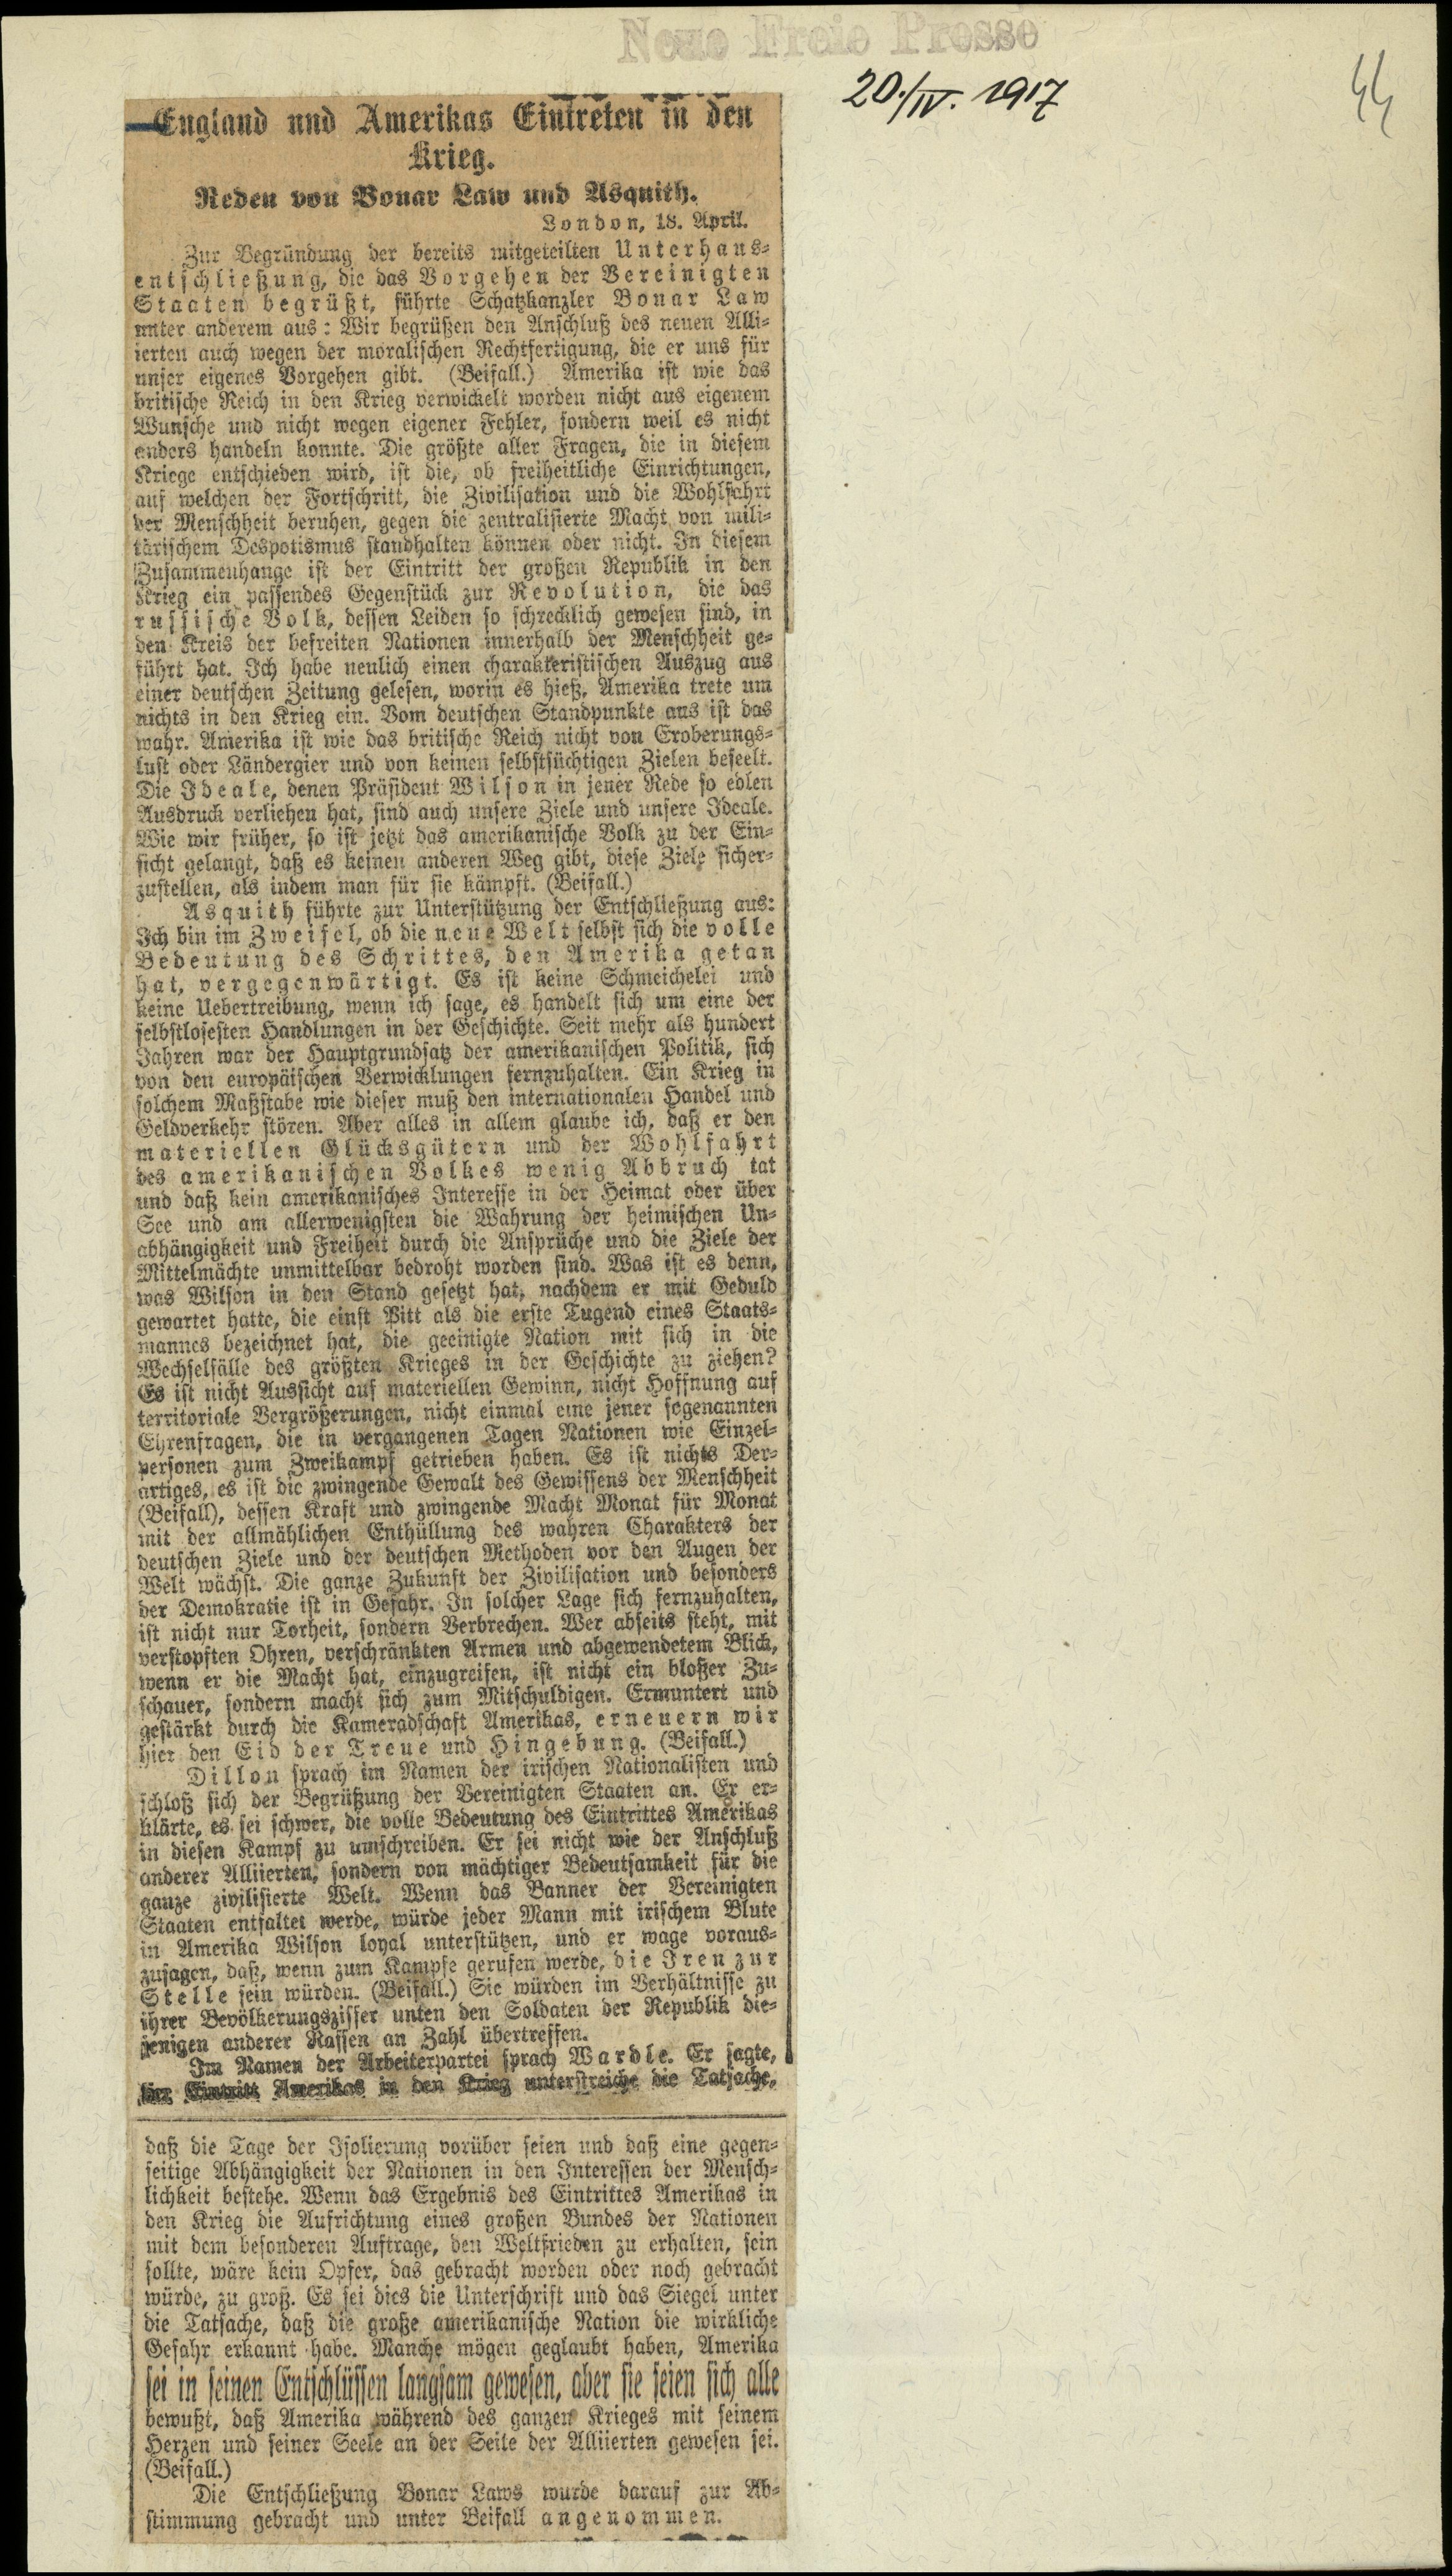 Neue Freie Presse
20./IV. 1917
44
England und Amerikas Eintreten in den
Krieg.
Reden von Bonar Law und Asquith.
London, 18. April.
Zur Begründung der bereits mitgeteilten Unterhaus-
entschließung, die das Vorgehen der Vereinigten
Staaten begrüßt, führte Schatzkanzler Bonar Law
unter anderem aus: Wir begrüßen den Anschluß des neuen Alli-
ierten auch wegen der moralischen Rechtfertigung, die er uns für
unser eigenes Vorgehen gibt. (Beifall.) Amerika ist wie das
britische Reich in den Krieg verwickelt worden nicht aus eigenem
Wunsche und nicht wegen eigener Fehler, sondern weil es nicht
anders handeln konnte. Die größte aller Fragen, die in diesem
Kriege entschieden wird, ist die, ob freiheitliche Einrichtungen,
auf welchen der Fortschritt, die Zivilisation und die Wohlfahrt
der Menschheit beruhen, gegen die zentralisierte Macht von mili-
tärischem Despotismus standhalten können oder nicht. In diesem
Zusammenhange ist der Eintritt der großen Republik in den
Krieg ein passendes Gegenstück zur Revolution, die das
russische Volk, dessen Leiden so schrecklich gewesen sind, in
den Kreis der befreiten Nationen innerhalb der Menschheit ge-
führt hat. Ich habe neulich einen charakteristischen Auszug aus
einer deutschen Zeitung gelesen, worin es hieß, Amerika trete um
nichts in den Krieg ein. Vom deutschen Standpunkte aus ist das
wahr. Amerika ist wie das britische Reich nicht von Eroberungs-
lust oder Ländergier und von keinen selbstsüchtigen Zielen beseelt.
Die Ideale, denen Präsident Wilson in jener Rede so edlen
Ausdruck verliehen hat, sind auch unsere Ziele und unsere Ideale.
Wie wir früher, so ist jetzt das amerikanische Volk zu der Ein-
sicht gelangt, daß es keinen anderen Weg gibt, diese Ziele sicher-
zustellen, als indem man für sie kämpft. (Beifall.)
Asquith führte zur Unterstützung der Entschließung aus:
Ich bin im Zweifel, ob die neue Welt selbst sich die volle
Bedeutung des Schrittes, den Amerika getan
hat, vergegenwärtigt. Es ist keine Schmeichelei und
keine Uebertreibung, wenn ich sage, es handelt sich um eine der
selbstlosesten Handlungen in der Geschichte. Seit mehr als hundert
Jahren war der Hauptgrundsatz der amerikanischen Politik, sich
von den europäischen Verwicklungen fernzuhalten. Ein Krieg in
solchem Maßstabe wie dieser muß den internationalen Handel und
Geldverkehr stören. Aber alles in allem glaube ich, daß er den
materiellen Glücksgütern und der Wohlfahrt
des amerikanischen Volkes wenig Abbruch tat
und daß kein amerikanisches Interesse in der Heimat oder über
See und am allerwenigsten die Wahrung der heimischen Un-
abhängigkeit und Freiheit durch die Ansprüche und die Ziele der
Mittelmächte unmittelbar bedroht worden sind. Was ist es denn,
was Wilson in den Stand gesetzt hat, nachdem er mit Geduld
gewartet hatte, die einst Pitt als die erste Tugend eines Staats-
mannes bezeichnet hat, die geeinigte Nation mit sich in die
Wechselfälle des größten Krieges in der Geschichte zu ziehen?
Es ist nicht Aussicht auf materiellen Gewinn, nicht Hoffnung auf
territoriale Vergrößerungen, nicht einmal eine jener sogenannten
Ehrenfragen, die in vergangenen Tagen Nationen wie Einzel-
personen zum Zweikampf getrieben haben. Es ist nichts Der-
artiges, es ist die zwingende Gewalt des Gewissens der Menschheit
(Beifall), dessen Kraft und zwingende Macht Monat für Monat
mit der allmählichen Enthüllung des wahren Charakters der
deutschen Ziele und der deutschen Methoden vor den Augen der
Welt wächst. Die ganze Zukunft der Zivilisation und besonders
der Demokratie ist in Gefahr. In solcher Lage sich fernzuhalten,
ist nicht nur Torheit, sondern Verbrechen. Wer abseits steht, mit
verstopften Ohren, verschränkten Armen und abgewendetem Blick,
wenn er die Macht hat, einzugreifen, ist nicht ein bloßer Zu-
schauer, sondern macht sich zum Mitschuldigen. Ermuntert und
gestärkt durch die Kameradschaft Amerikas, erneuern wir
hier den Eid der Treue und Hingebung. (Beifall.)
Dillon sprach im Namen der irischen Nationalisten und
schloß sich der Begrüßung der Vereinigten Staaten an. Er er-
klärte, es sei schwer, die volle Bedeutung des Eintrittes Amerikas
in diesen Kampf zu umschreiben. Er sei nicht wie der Anschluß
anderer Alliierten, sondern von mächtiger Bedeutsamkeit für die
ganze zivilisierte Welt. Wenn das Banner der Vereinigten
Staaten entfaltet werde, würde jeder Mann mit irischem Blute
in Amerika Wilson loyal unterstützen, und er wage voraus-
zusagen, daß, wenn zum Kampfe gerufen werde, die Iren zur
Stelle sein würden. (Beifall.) Sie würden im Verhältnisse zu
ihrer Bevölkerungsziffer unten den Soldaten der Republik die-
jenigen anderer Rassen an Zahl übertreffen.
Im Namen der Arbeiterpartei sprach Wardle. Er sagte,
der Eintritt Amerikas in den Krieg unterstreiche die Tatsache,
daß die Tage der Isolierung vorüber seien und daß eine gegen-
seitige Abhängigkeit der Nationen in den Interessen der Mensch-
lichkeit bestehe. Wenn das Ergebnis des Eintrittes Amerikas in
den Krieg die Aufrichtung eines großen Bundes der Nationen
mit dem besonderen Auftrage, den Weltfrieden zu erhalten, sein
sollte, wäre kein Opfer, das gebracht worden oder noch gebracht
würde, zu groß. Es sei dies die Unterschrift und das Siegel unter
die Tatsache, daß die große amerikanische Nation die wirkliche
Gefahr erkannt habe. Manche mögen geglaubt haben, Amerika
sei in seinen Entschlüssen langsam gewesen, aber sie seien sich alle
bewußt, daß Amerika während des ganzen Krieges mit seinem
Herzen und seiner Seele an der Seite der Alliierten gewesen sei.
(Beifall.)
Die Entschließung Bonar Laws wurde darauf zur Ab-
stimmung gebracht und unter Beifall angenommen.